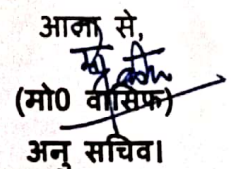 आज्ञा से,
(मो0 वासिफ)
अनु सचिव।